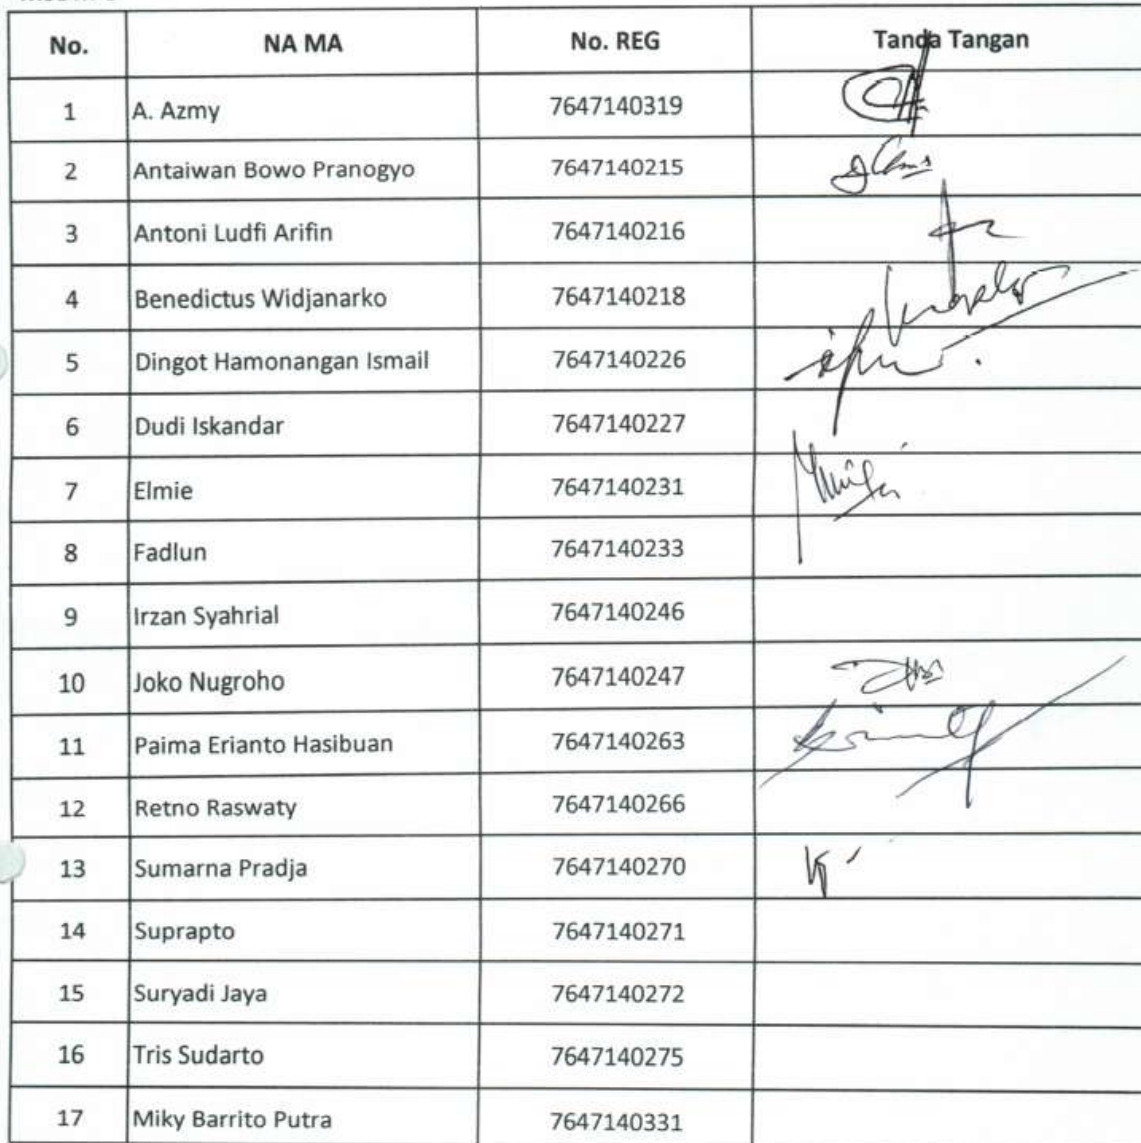 No. NA MA No. REG Tanda Tangan
1 A. Azmy 7647140319
2 Antaiwan Bowo Pranogyo 7647140215
3 Antoni Ludfi Arifin 7647140216
4 Benedictus Widjanarko 7647140218
5 Dingot Hamonangan Ismail 7647140226
6 Dudi Iskandar 7647140227
7 Elmie 7647140231
8 Fadlun 7647140233
9 Irzan Syahrial 7647140246
10 Joko Nugroho 7647140247
11 Paima Erianto Hasibuan 7647140263
12 Retno Raswaty 7647140266
13 Sumarna Pradja 7647140270
14 Suprapto 7647140271
15 Suryadi Jaya 7647140272
16 Tris Sudarto 7647140275
17 Miky Barrito Putra 7647140331